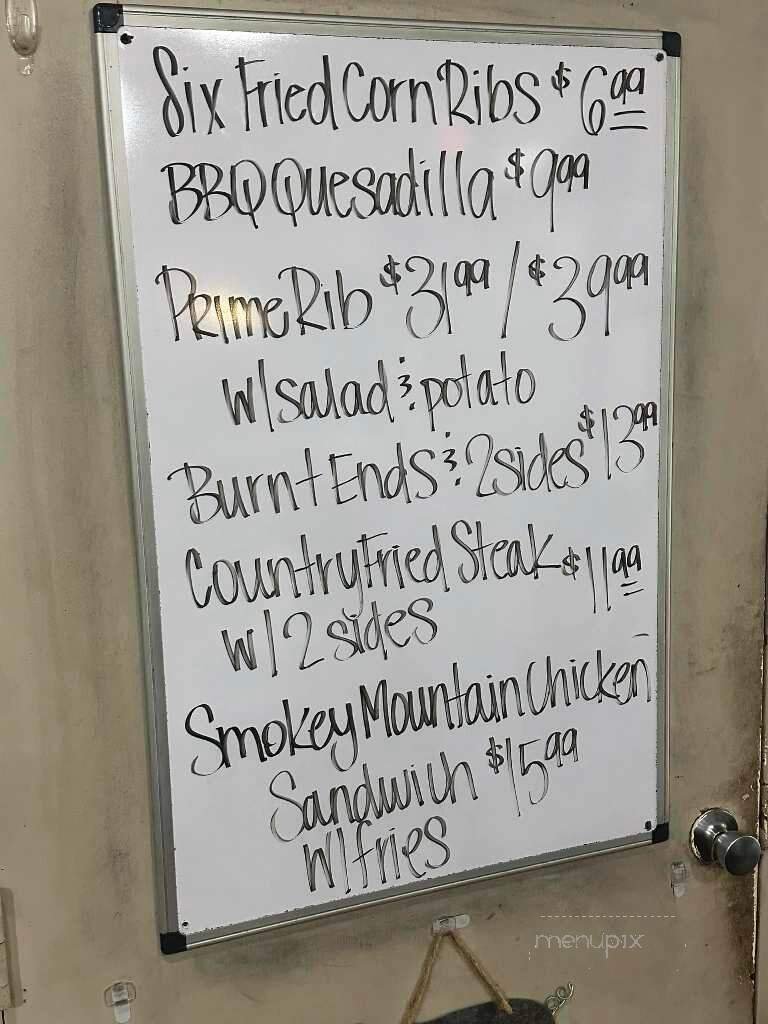 Six Fried Corn Ribs $6.99
BBQ Quesadilla $9.99
Prime Rib $31.99 / $39.99
w/salad & potato
Burnt Ends & 2 sides $13.99
Country Fried Steak $11.99
w/2 sides
Smokey Mountain Chicken
Sandwich $15.99
w/fries
menupix